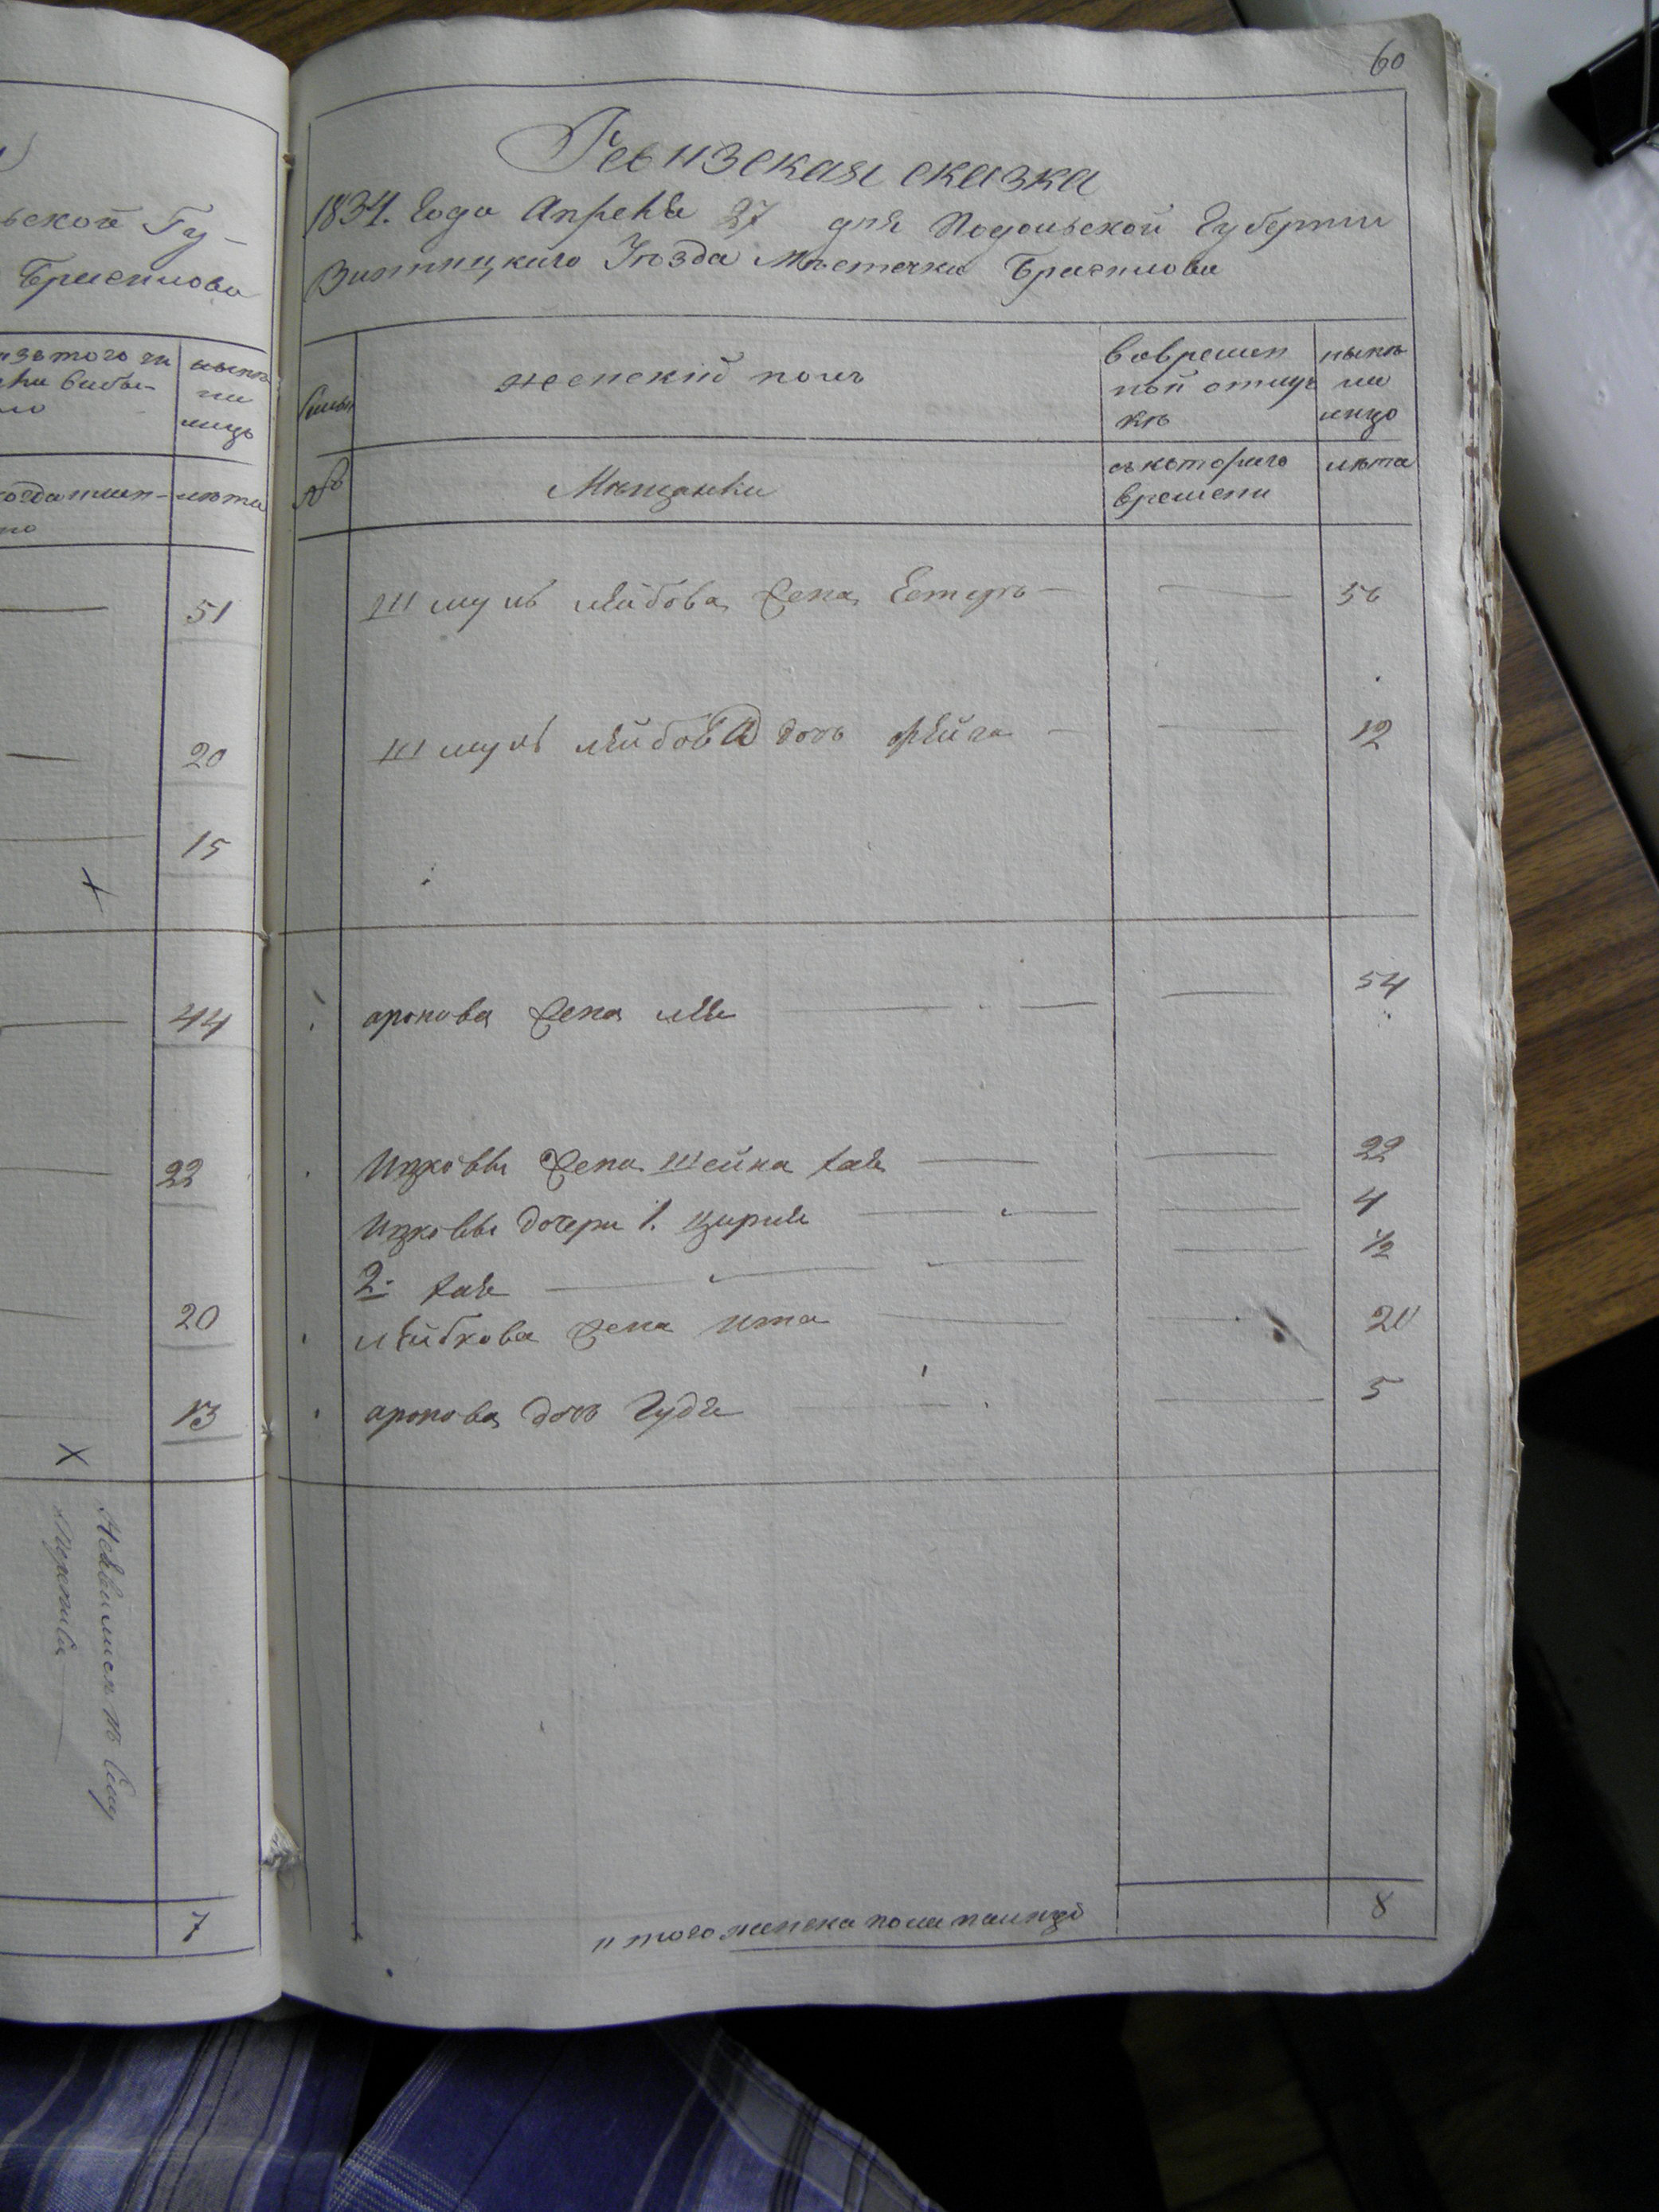 ьской Гу-
Браилова
нынѣ
ни
лицо
лѣта
51
20
15
44
22
20
13
7
60
Ревизская сказка
1834. Года Апреля 27 дня Подольской Губернии
Винницкаго Уѣзда Мѣстечка Браилова
Семьи
женскій полъ
вовремен
ной отлуч
кѣ
нынѣ
ли
лицо
№
Мѣщанки
съ котораго
времени
лѣта
Шмуль Лейбова жена Естеръ — — 56
Шмуль Лейбова дочь Фейга — — 12
аронова жена Лея — — 54
Ицковы жена Шейна хая — — 22
Ицковы дочери 1. Цирля — — 4
2. хая — — 1/2
Лейбкова жена Ита — — 20
аронова дочь Гудя — — 5
итого женска пола налицо 8